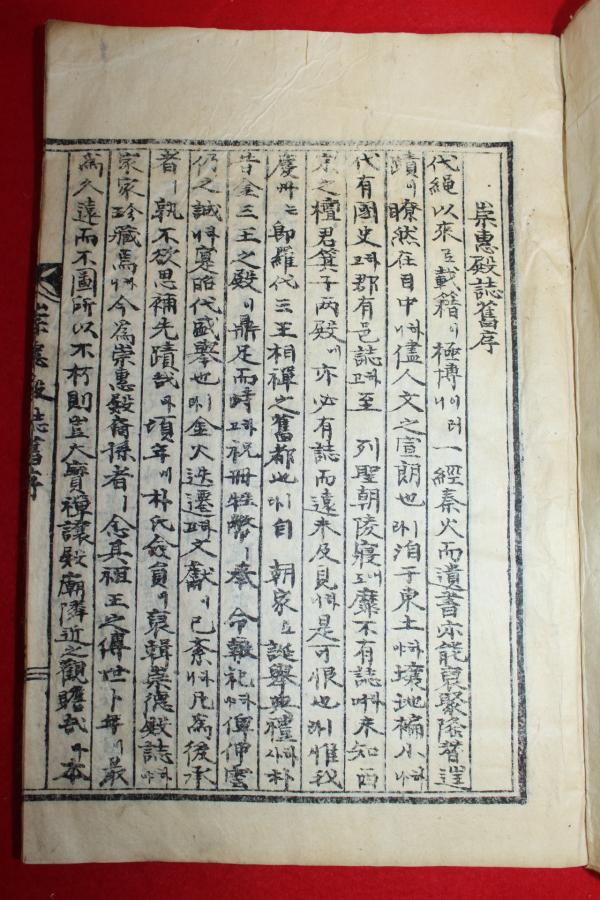 崇惠殿誌舊序
代繩以來로載籍이極博이러니一經秦火而遺書亦能裒聚隆替
蹟이瞭然在目中하니儘人文之宣朗也라洎于東土하야壤地褊小하나
代有國史하고郡有邑誌하고至 列聖朝陵寢도靡不有誌 未知西
京之檀君箕子兩殿에亦必有誌而遠未及見하니是可恨也라惟我
慶州는卽羅代三王相禪之舊都也라自 朝家로誕擧典禮하사朴
昔金三王之殿이鼎足而時하고祝冊牲幣ㅣ奉 命報祀하야伸雲
仍之誠하니寔昭代盛擧也라金火迭遷 文獻이已紊하니凡爲後承
者ㅣ孰不欲思補先蹟哉아頃年에朴氏僉員이裒輯崇德殿誌하야
宗家珍藏焉하니今爲崇惠殿裔孫者ㅣ念其祖王之傳世卜年이最
爲久遠而不圖所以不朽則豈大寶禪讓殿廟隣近之觀瞻哉아本
崇惠殿誌舊序